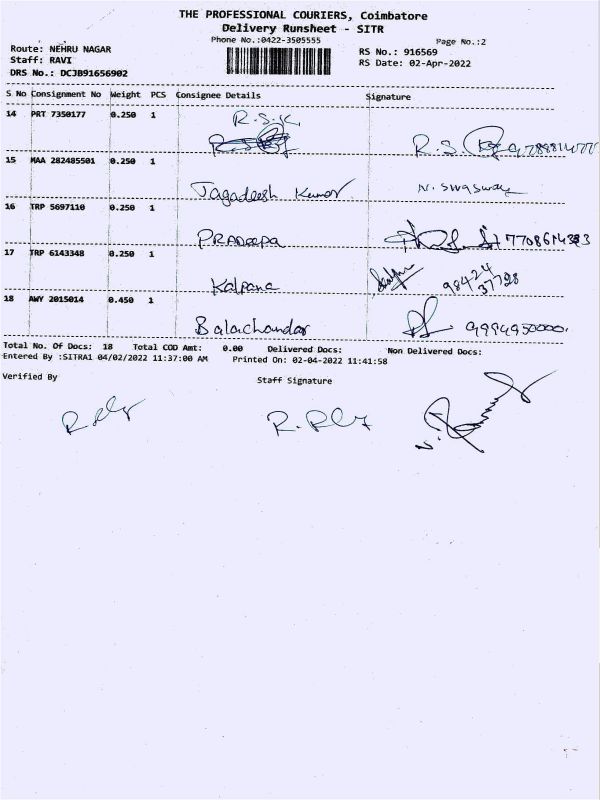 THE PROFESSIONAL COURIERS, Coimbatore
Delivery Runsheet - SITR
Phone No.:0422-3505555
Page No.:2
Route: NEHRU NAGAR
RS No.: 916569
Staff: RAVI
RS Date: 02-Apr-2022
DRS No.: DCJB91656902
S No Consignment No Weight PCS Consignee Details Signature
14 PRT 7350177 0.250 1 R.S.K. R.S.
15 MAA 282485501 0.250 1 Jagadeesh Kumar
16 TRP 5697110 0.250 1 PRADeepa
17 TRP 6143348 0.250 1 Kalpana 98424
37798
18 AWY 2015014 0.450 1 Balachandar 9994950000.
Total No. Of Docs: 18 Total COD Amt: 0.00 Delivered Docs: Non Delivered Docs:
Entered By :SITRA1 04/02/2022 11:37:00 AM Printed On: 02-04-2022 11:41:58
Verified By
Staff Signature